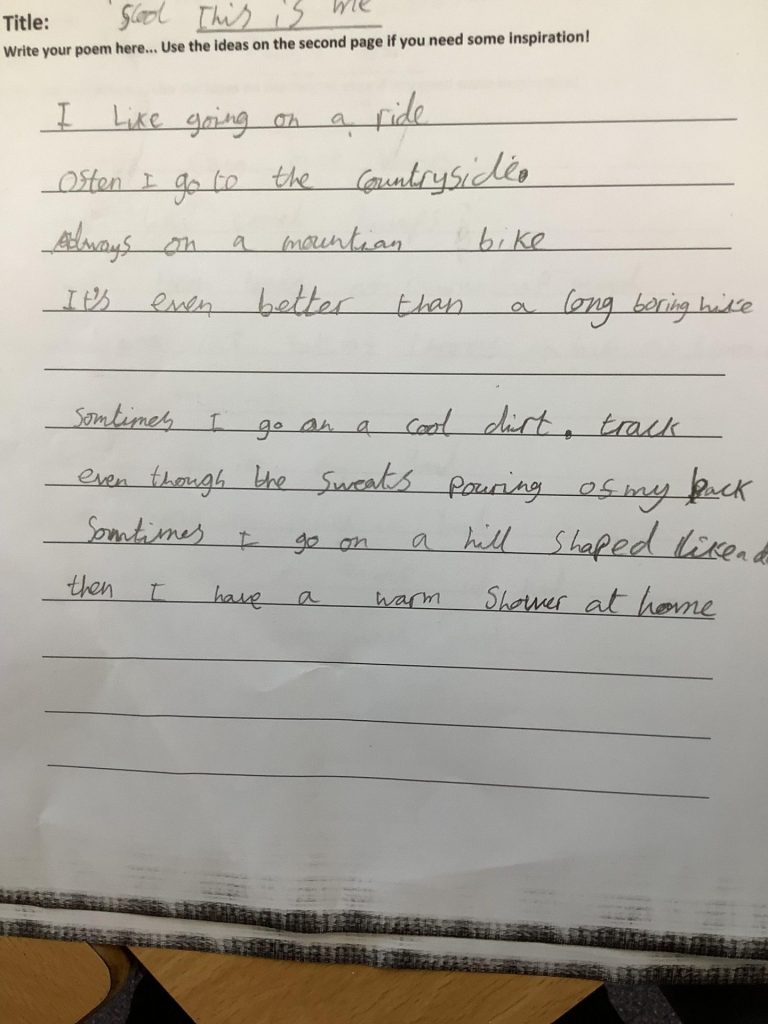 Title: This is me
Write your poem here... Use the ideas on the second page if you need some inspiration!
I Like going on a ride
Often I go to the Countryside.
Always on a mountian bike
It's even better than a long boring hike
Somtimes I go on a cool dirt. track
even though the sweats pouring of my back
Somtimes I go on a hill shaped like a
then I have a warm shower at home